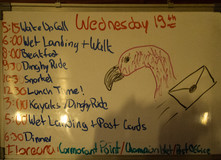 Wednesday 19th
5:45 Wake Up Call
6:00 Wet Landing + Walk
8:00 Breakfast
9:30 Dinghy Ride
10:?
Snorkel
12:30 Lunch Time!
3:00 Kayaks / Dinghy Ride
5:00 Wet Landing + Post Cards
6:30 Dinner
Floreana (Cormorant Point / Champion Islet / Post Office